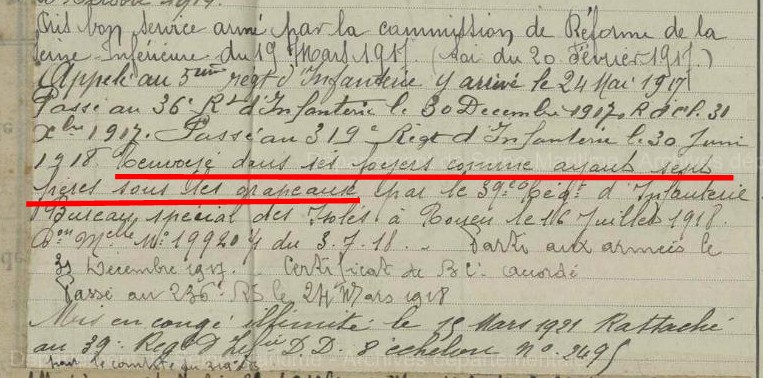 Octobre 1917.
Pris bon service armé par la commission de Réforme de la
Seine-Inférieure du 19 Mars 1917. (Loi du 20 Février 1917.)
Appelé au 5ème régt d'Infanterie y arrivé le 24 Mai 1917
Passé au 36e Rt d'Infanterie le 30 Décembre 1917. R d C p. 31
Xbre 1917. Passé au 319e Régt d'Infanterie le 30 Juin
1918. Renvoyé dans ses foyers comme ayant sept
frères sous les drapeaux par le 39e Régt d'Infanterie
Bureau spécial des Isolés à Rouen le 16 Juillet 1918.
Don Mlle No 19920 du 3.7.18. - Parti aux armées le
31 Décembre 1917. - Certificat de B. C. accordé
Passé au 236e RI le 24 Mars 1918
Mis en congé illimité le 15 Mars 1921 Rattaché
au 39e Regt D D. 8e échelon no 2495
par le comité du
Archives départementales